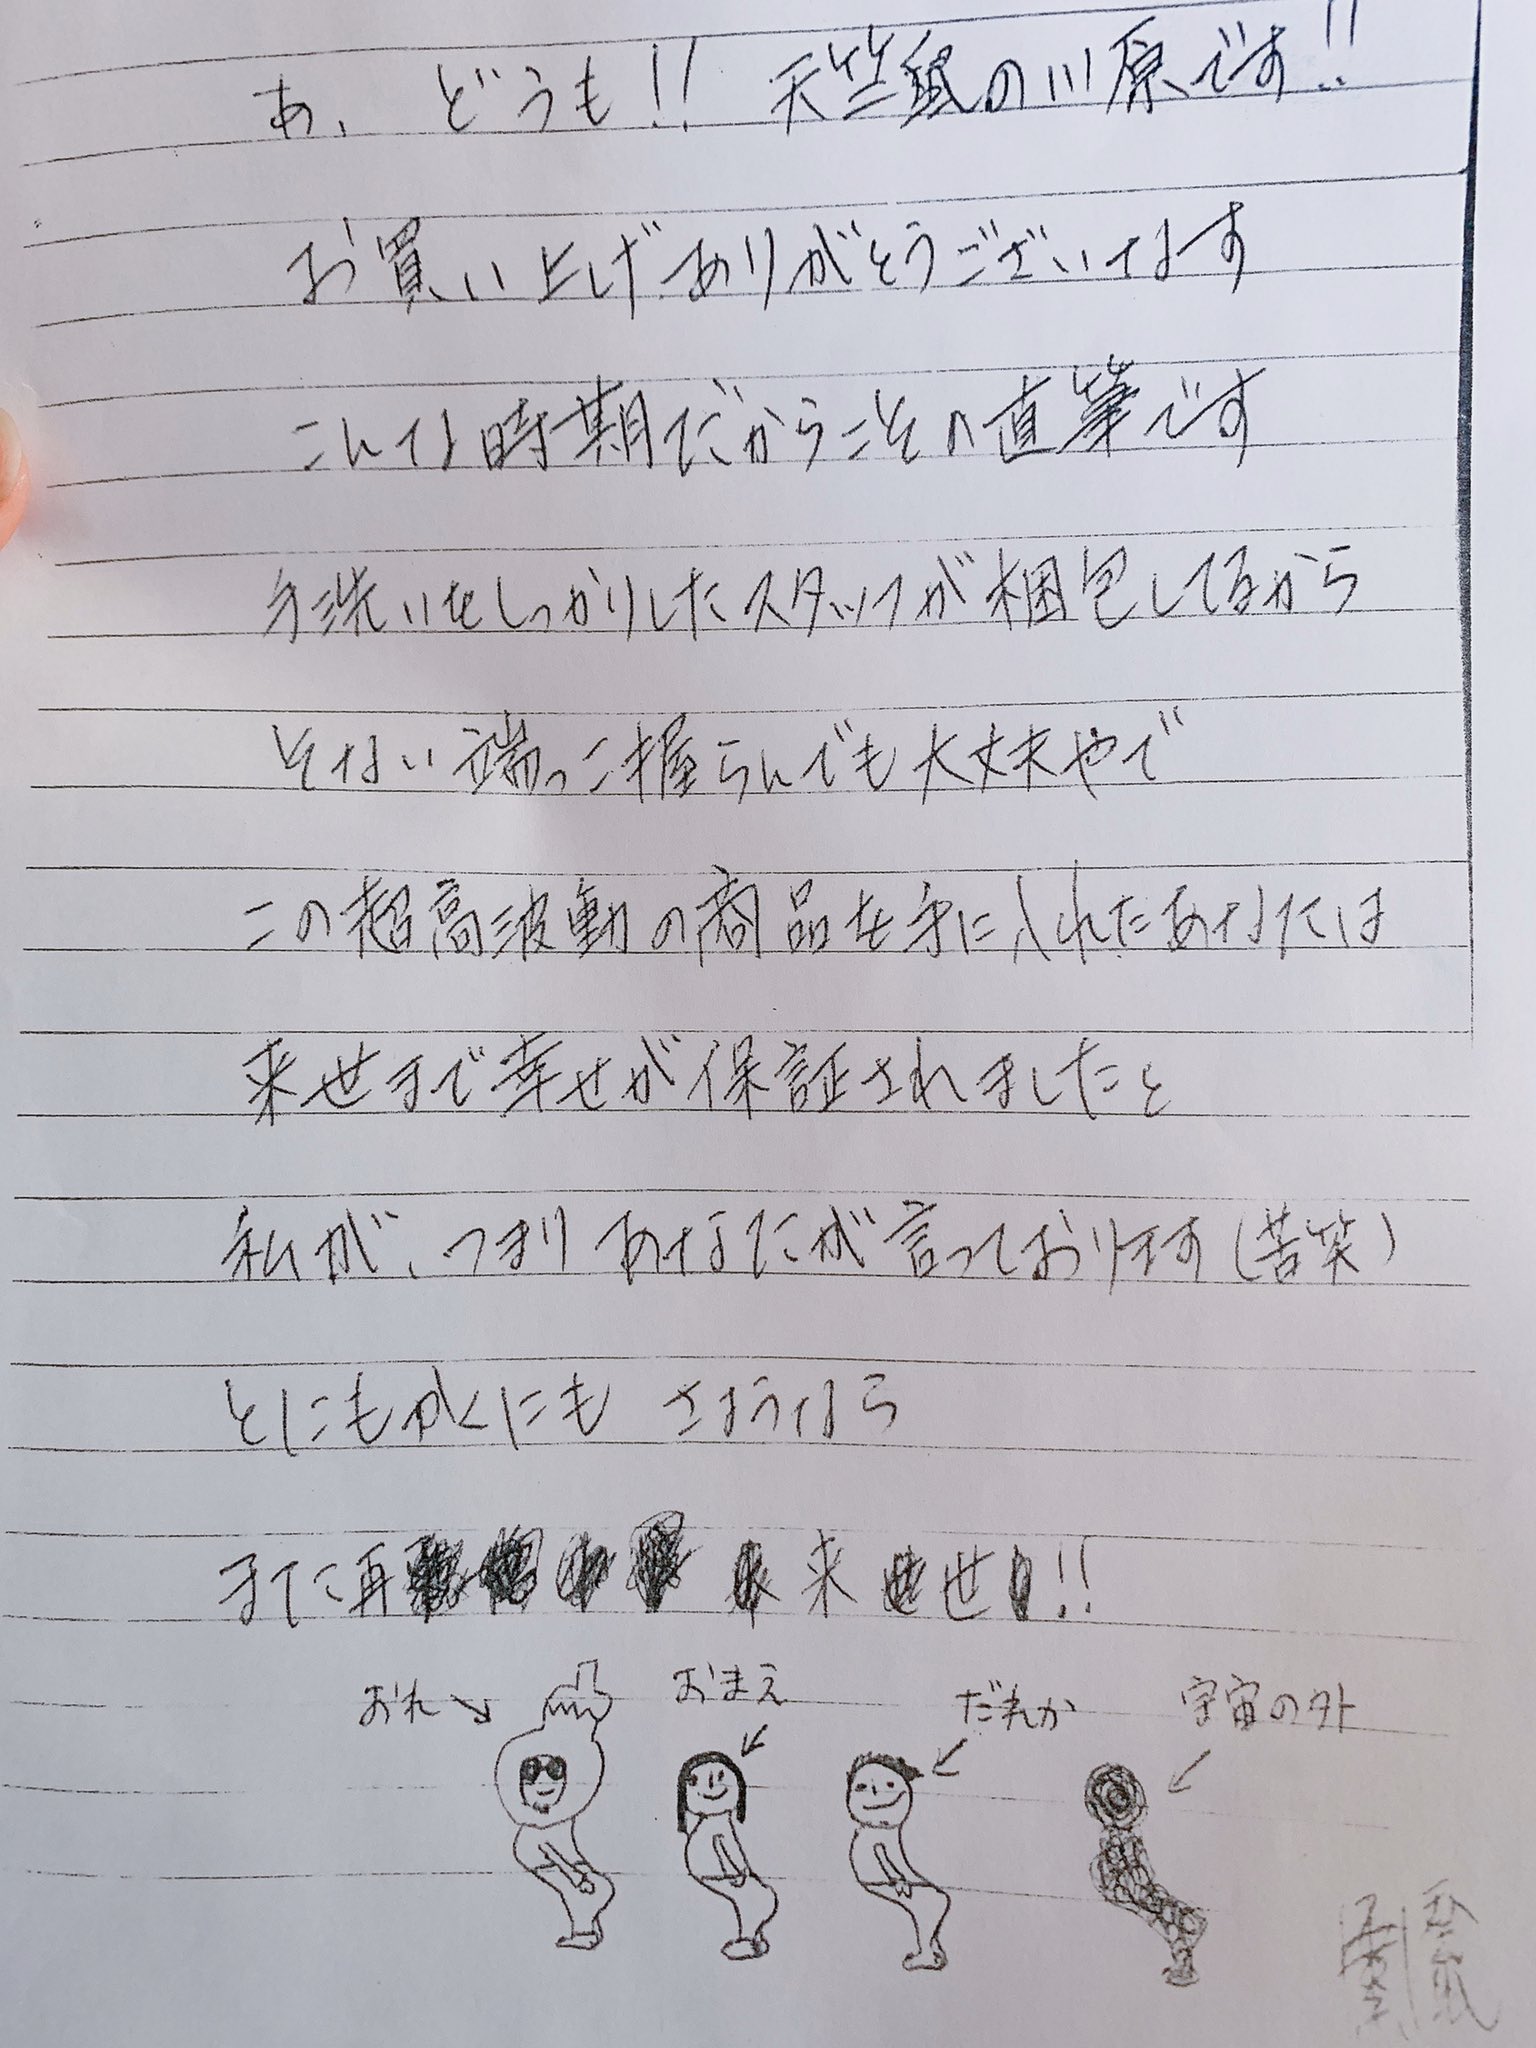 あ、どうも!! 天竺鼠の川原です!!
お買い上げありがとうございます
こんな時期だからこその直筆です
手洗いをしっかりしたスタッフが梱包してるから
そない端っこ握らんでも大丈夫やで
この超高波動の商品を手に入れたあなたには
来世まで幸せが保証されましたと
私が、つまりあなたが言っております(苦笑)
とにもかくにも さようなら
また再 来 世 !!
おれ
おまえ
だれか
宇宙の外